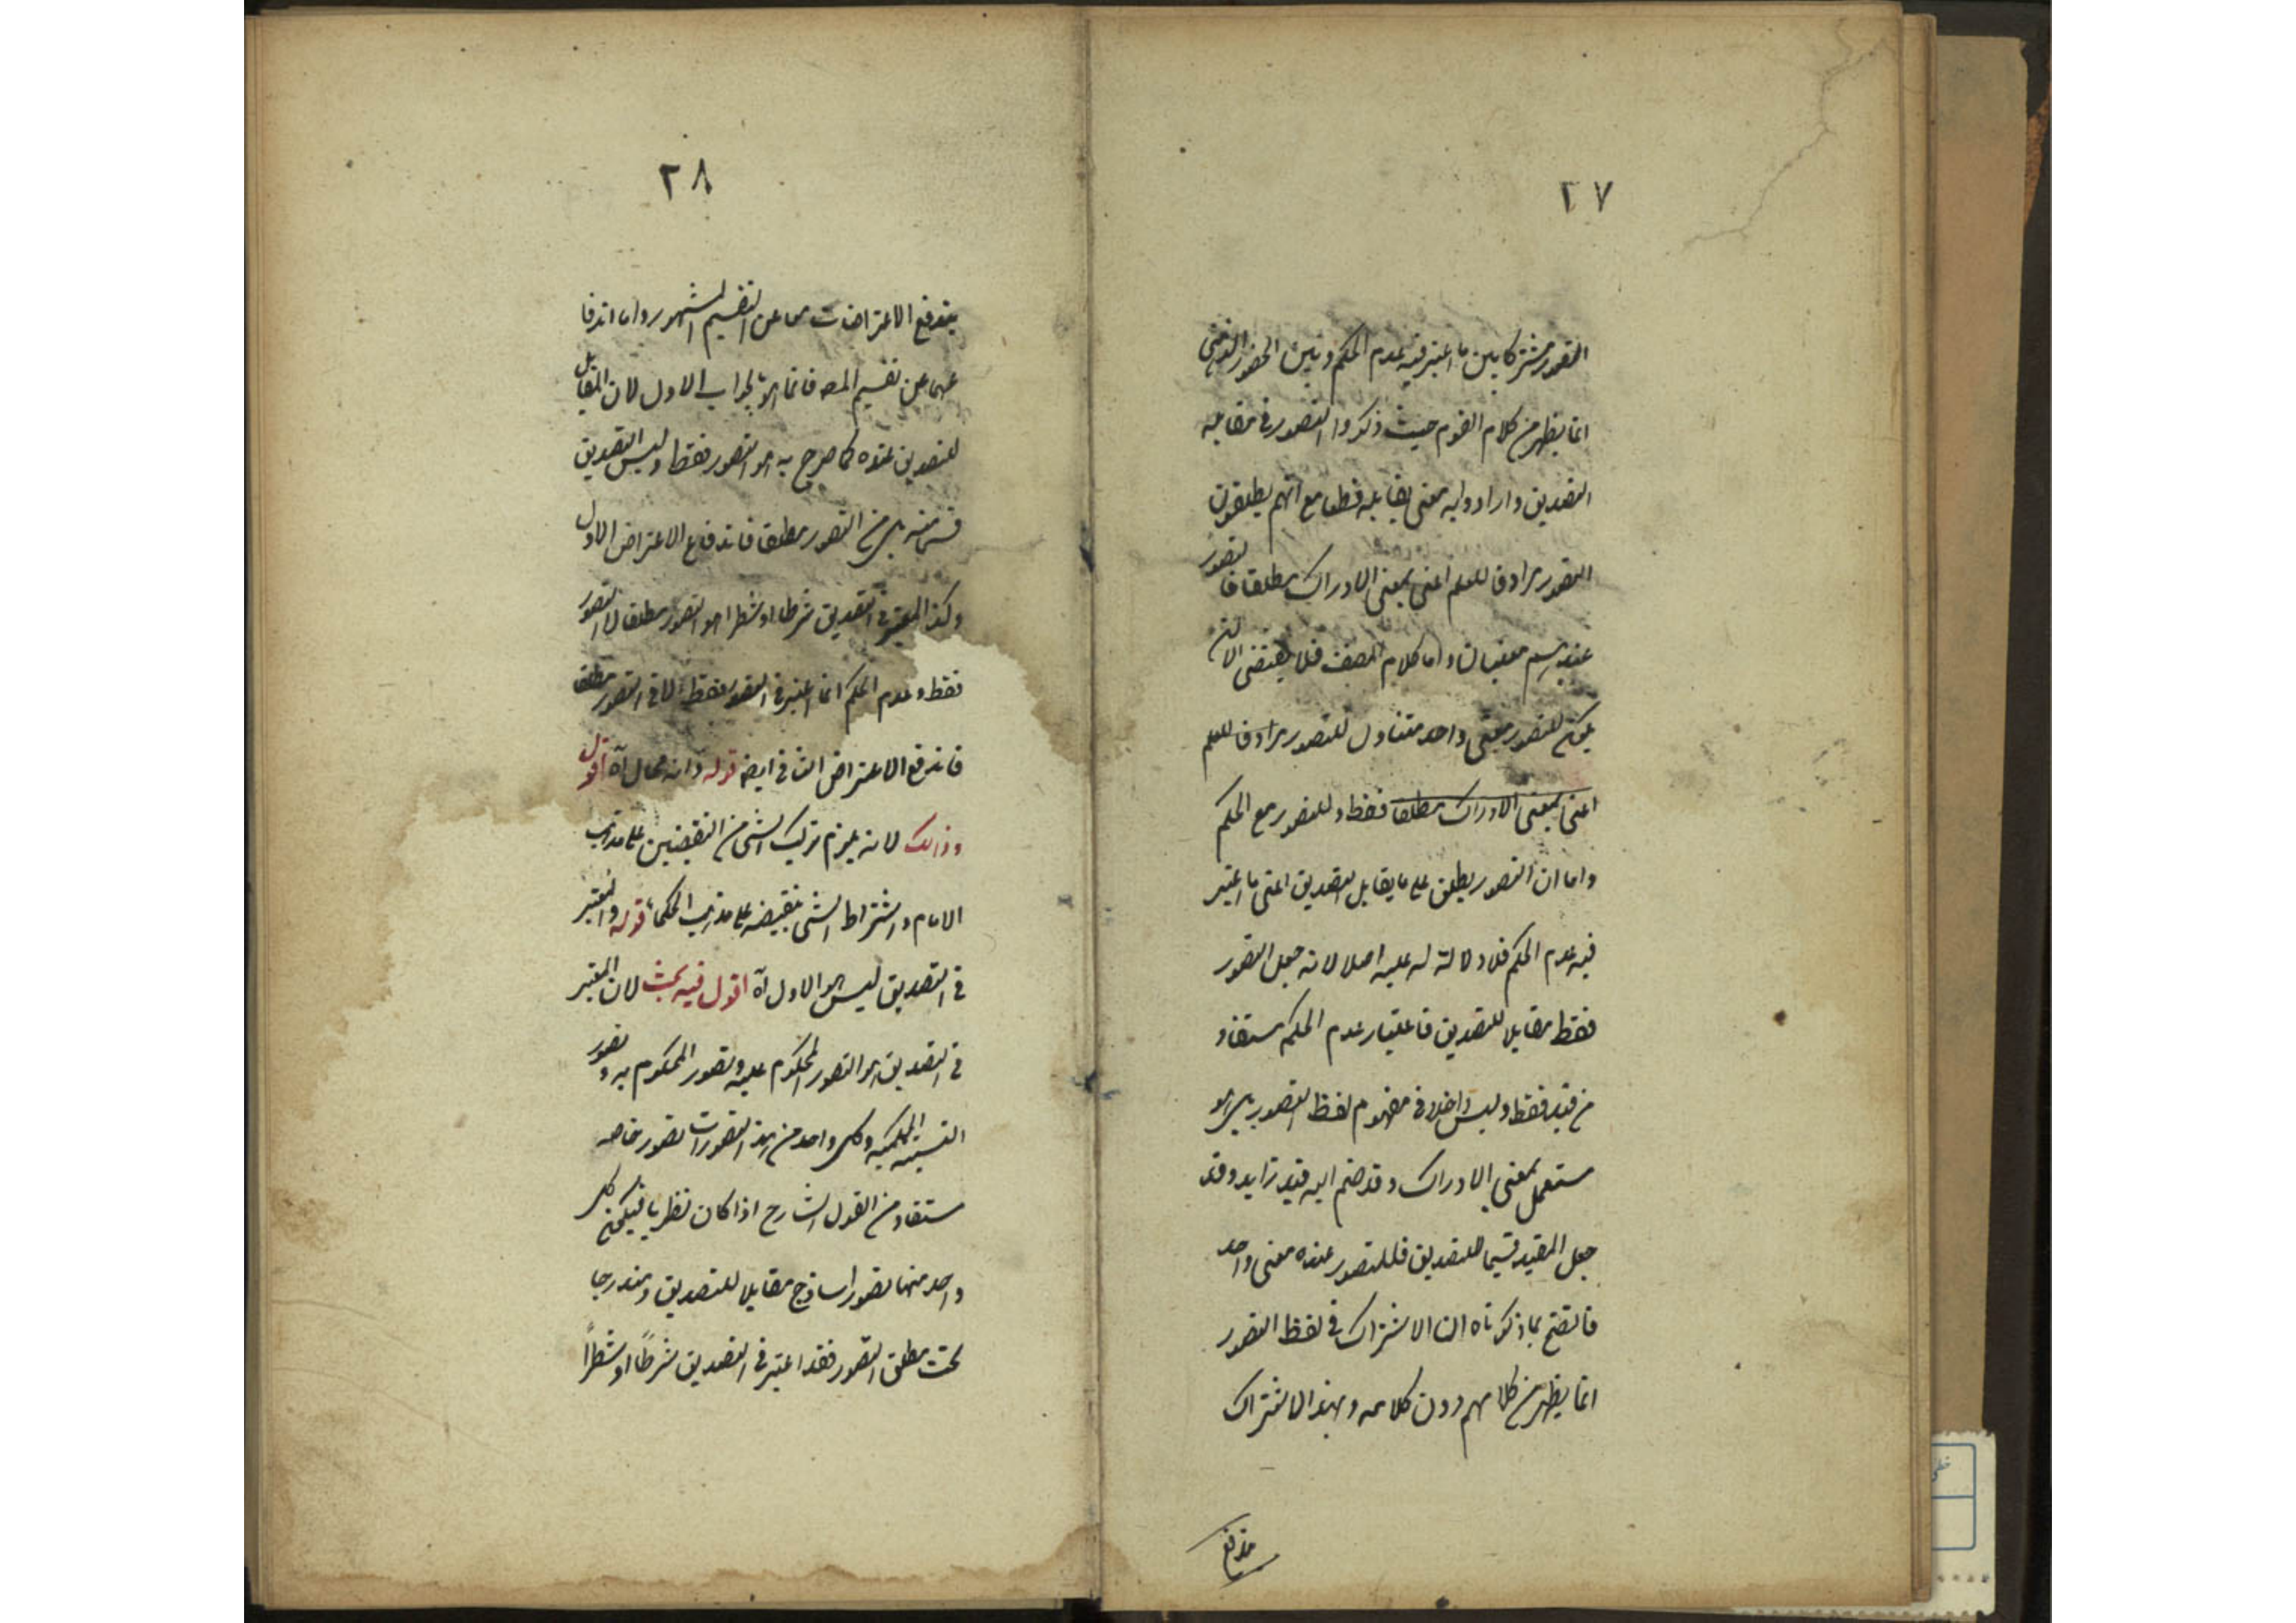 ٢٧
التصور مشتركا بين ما اعتبر فيه عدم الحكم وبين الحضور الذهنى
انما يظهر من كلام القوم حيث ذكروا التصور فى مقابله
التصديق وارادوا به معنى يقابله قطعا مع انهم يطلقون
التصور مرادفا للعلم اعنى بمعنى الادراك مطلقا فالتصور
عندهم معنيان واما كلام المصنف فلا يقتضى الا ان
يكون للتصور معنى واحد متناول للتصور مرادفا للعلم
اعنى بمعنى الادراك مطلقا فقط وللتصور مع الحكم
واما ان التصور يطلق على ما يقابل التصديق اعنى ما اعتبر
فيه عدم الحكم فلا دلالة له عليه اصلا لانه جعل التصور
فقط مقابلا للتصديق فاعتبار عدم الحكم مستفاد
من قيد فقط وليس داخلا فى مفهوم لفظ التصور بل هو
مستعمل بمعنى الادراك وقد ضم اليه قيد زايد وقد
جعل المقيد قسيما للتصديق فللتصور عنده معنى واحد
فاتضح بما ذكرناه ان الاشتراك فى لفظ التصور
انما يظهر من كلامهم دون كلامه وبهذا الاشتراك
يندفع
٢٨
يندفع الاعتراضات معا عن التقسيم المشهور واما اندفا
عهما عن تقسيم المص فانما هو بالجواب الاول لان المقابل
للتصديق عنده كما صرح به هو التصور فقط وليس التصديق
قسما منه بل من التصور مطلقا فاندفاع الاعتراض الاول
وكذا المعتبر فى التصديق شرطا او شطرا هو التصور مطلقا لا التصور
فقط وعدم الحكم انما اعتبر فى التصور فقط لا فى التصور مطلقا
فاندفع الاعتراض الثانى ايضا قوله وانه محال آه اقول
وذالك لانه يلزم تركب الشى من النقيضين على مذهب
الامام واشتراط الشى بنقيضه على مذهب الحكما قوله والمعتبر
فى التصديق ليس هو الاول آه اقول فيه بحث لان المعتبر
فى التصديق هو التصور المحكوم عليه وتصور المحكوم به وتصور
النسبة الحكمية وكل واحد من هذه التصورات تصور خاص
مستفاد من القول الشارح اذا كان نظريا فيكون كل
واحد منها تصورا ساذجا مقابلا للتصديق ومندرجا
تحت مطلق التصور فقد اعتبر فى التصديق شرطًا او شطرًا